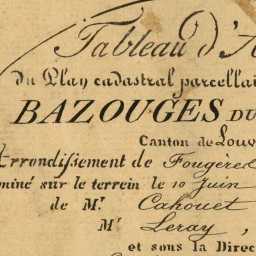 Tableau d'A
du Plan cadastral parcellai
BAZOUGES DU
Canton de Louv
Arrondissement de Fougères
miné sur le terrein le 10 Juin
de Mr. Cahouet
Mr Leray,
et sous la Direc